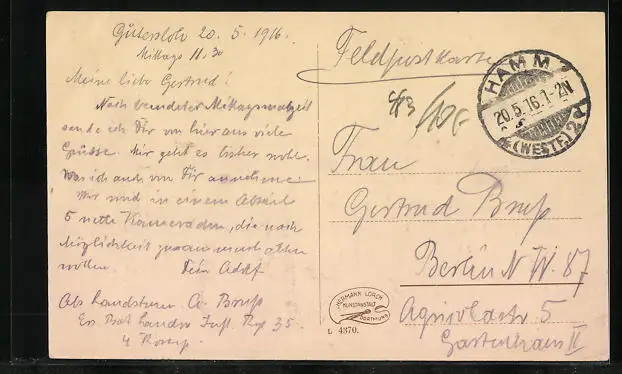 Gütersloh 20. 5. 1916.
Mittags 11.30
Meine liebe Gertrud!
Nach beendeter Mittagsmahlzeit
sende ich Dir von hier aus viele
Grüsse. Mir geht es bisher wohl.
Was ich auch von Dir annehme.
Wir sind in einem Abteil
5 nette Kameraden, die nach
Möglichkeit zusammenhalten
wollen. Dein Adolf
Abs. Landsturm. A.
Ers. Bat. Landw. Inf. Reg 35.
4 Komp.
Feldpostkarte
HAMM
20.5.16.1-2N
(WESTF.) 2
Frau
Gertrud
Berlin N.W. 87
5
Gartenhaus II
HERMANN LORCH
KUNSTANSTALT
DORTMUND
L 4370.